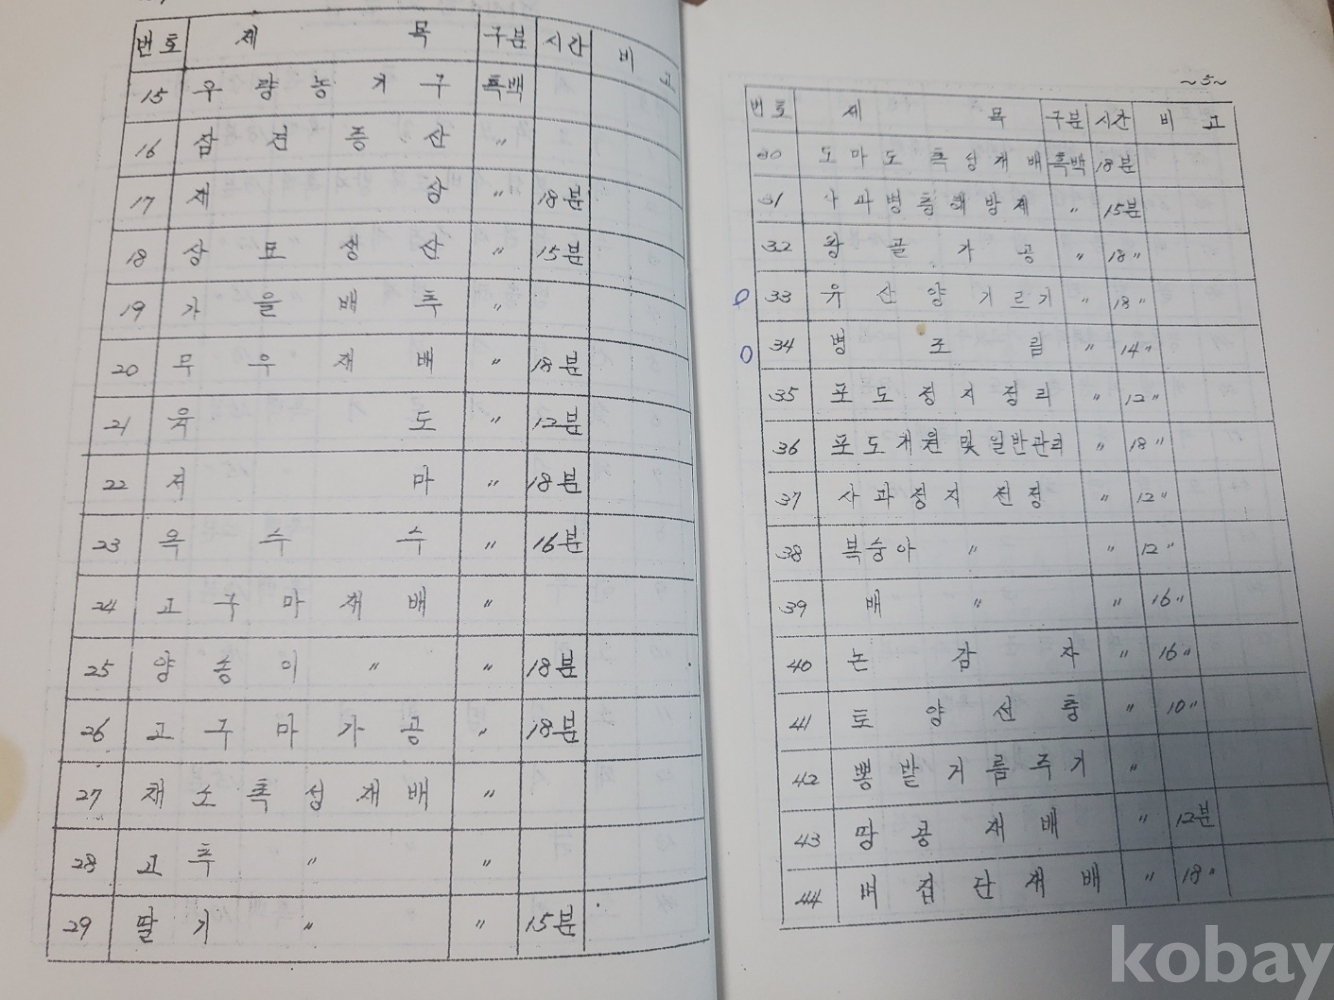 번호 제목 구분 시간 비고
15 우량농기구 흑백
16 잠견증산 〃
17 재상 〃 18분
18 상묘생산 〃 15분
19 가을배추 〃
20 무우재배 〃 18분
21 육도 〃 12분
22 저마 〃 18분
23 옥수수 〃 16분
24 고구마재배 〃
25 양송이 〃 〃 18분
26 고구마가공 〃 18분
27 채소촉성재배 〃
28 고추 〃 〃
29 딸기 〃 〃 15분
~5~
번호 제목 구분 시간 비고
30 도마도촉성재배 흑백 18분
31 사과병충해방제 〃 15분
32 왕골가공 〃 18〃
33 유산양기르기 〃 18〃
34 병조림 〃 14〃
35 포도정지정리 〃 12〃
36 포도개원 및 일반관리 〃 18〃
37 사과정지 전정 〃 12〃
38 복숭아 〃 〃 12〃
39 배 〃 〃 16〃
40 논감자 〃 16〃
41 토양선충 〃 10〃
42 뽕밭거름주기 〃
43 땅콩재배 〃 12분
44 벼집단재배 〃 18〃
kobay